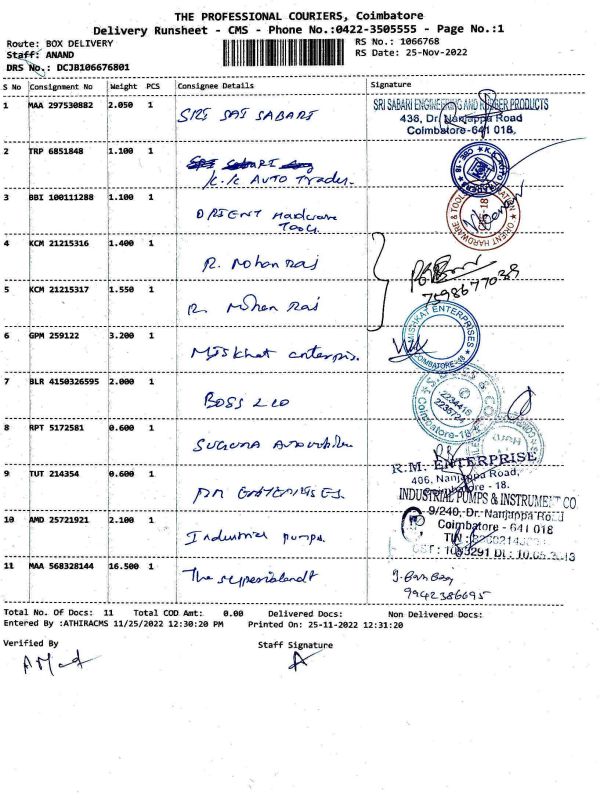 THE PROFESSIONAL COURIERS, Coimbatore
Delivery Runsheet - CMS - Phone No.:0422-3505555 - Page No.:1
Route: BOX DELIVERY
RS No.: 1066768
Staff: ANAND
RS Date: 25-Nov-2022
DRS No.: DCJB106676801
S No Consignment No Weight PCS Consignee Details Signature
1 MAA 297530882 2.050 1 SRI SAI SABARI
SRI SABARI ENGINEERING AND RUBBER PRODUCTS
436, Dr. Nanjappa Road
Coimbatore-641 018.
2 TRP 6851848 1.100 1
K.K AUTO Traders.
3 BBI 100111288 1.100 1 ORIENT Hardware
TOOLS
ORIENT HARDWARE & TOOL
4 KCM 21215316 1.400 1 R. Mohan Raj
5 KCM 21215317 1.550 1 R. Mohan Raj
7598677038
6 GPM 259122 3.200 1 MISKhat enterpris.
MISHKAT ENTERPRISES
COIMBATORE-18
7 BLR 4150326595 2.000 1 BOSS & CO
& CO
2234416
2235724
Coimbatore-18
8 RPT 5172581 0.600 1 SUGUNA Automobiles
9 TUT 214354 0.600 1 RM ENTERPRISES.
R.M. ENTERPRISE
406, Nanjappa Road,
Coimbatore - 18.
10 AMD 25721921 2.100 1 Industrial pumps
INDUSTRIAL PUMPS & INSTRUMENT CO.
9/240, Dr. Nanjappa Road
Coimbatore - 641 018
TIN :
CST : 1093291 Dt :
11 MAA 568328144 16.500 1 The
9942386695
Total No. Of Docs: 11 Total COD Amt: 0.00 Delivered Docs: Non Delivered Docs:
Entered By :ATHIRACMS 11/25/2022 12:30:20 PM Printed On: 25-11-2022 12:31:20
Verified By
Staff Signature